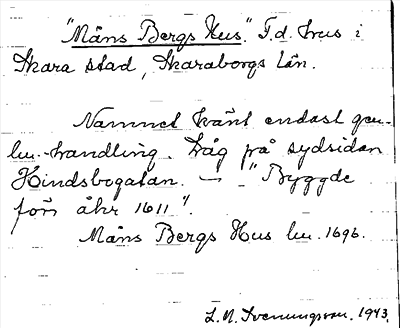 "Måns Bergs Hus." F.d. hus i
Skara stad, Skaraborgs län.
Namnet känt endast gen.
lm.-handling. Låg på sydsidan
Hindsbogatan. — "Byggde
förr åhr 1611".
Måns Bergs Hus lm. 1696.
L. M. Svenungsson. 1943.